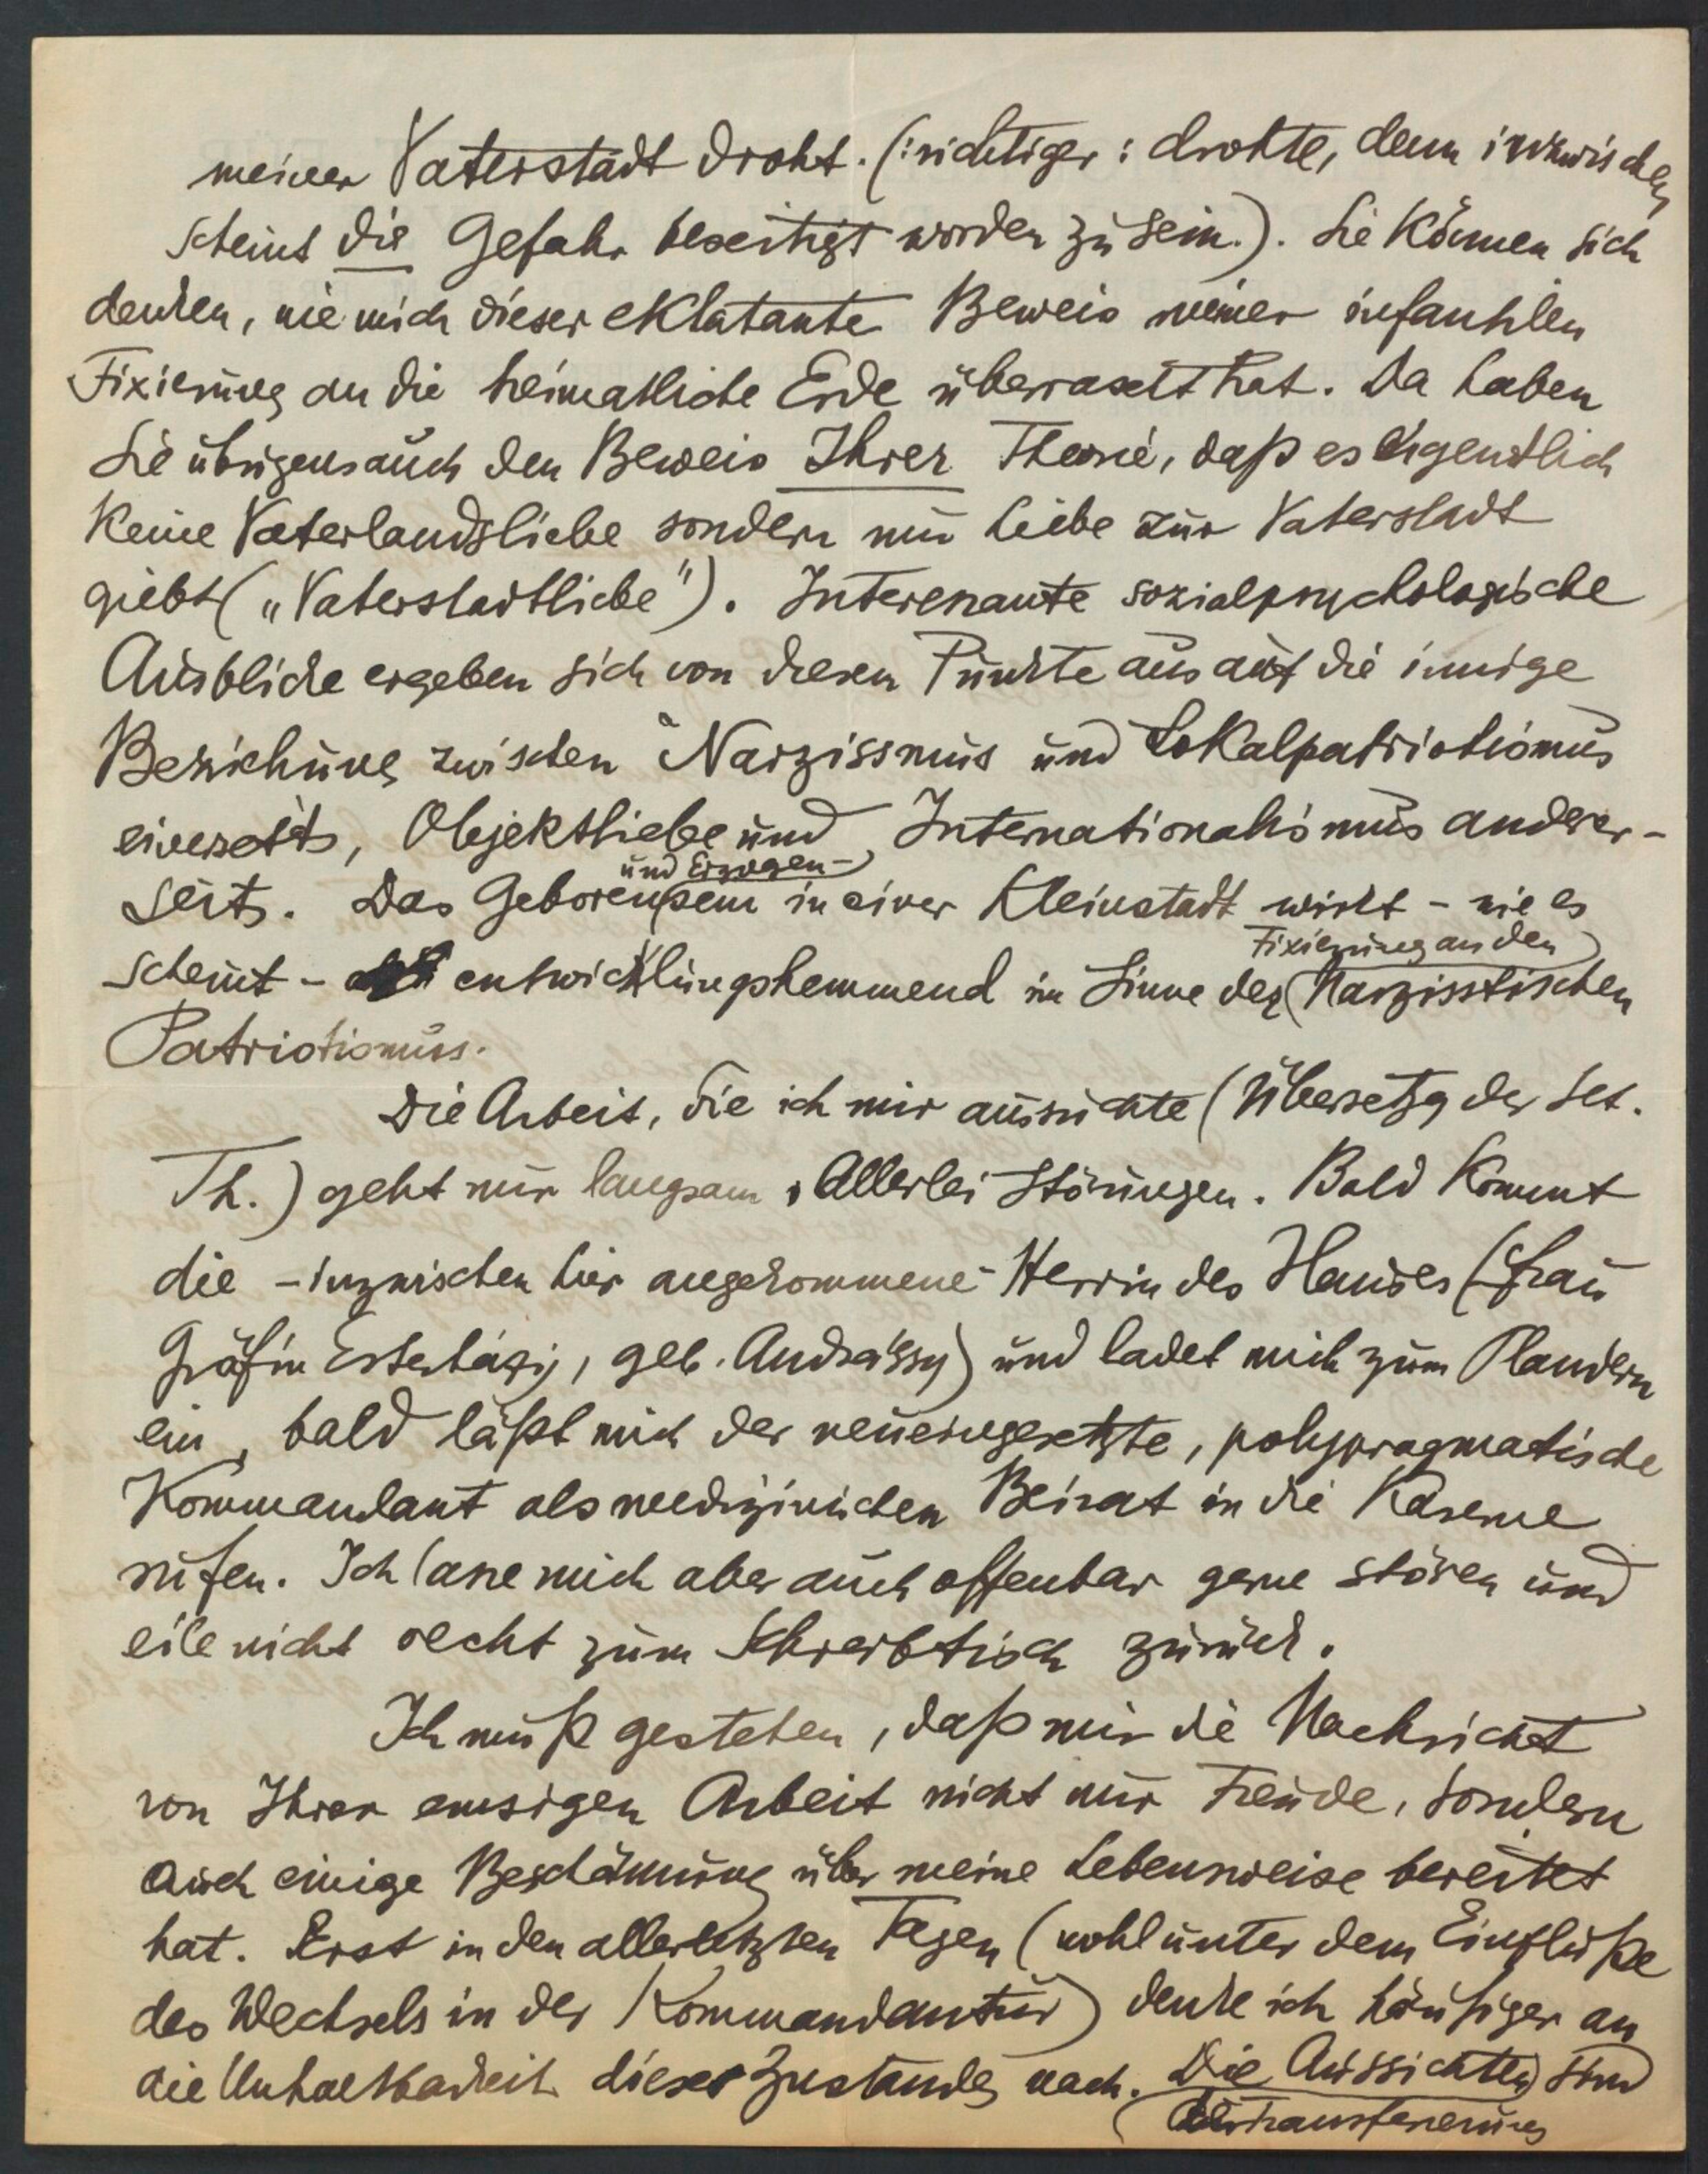 meiner Vaterstadt droht. (: richtiger : drohte, denn inzwischen
scheint die Gefahr beseitigt worden zu sein.). Sie können sich
denken, wie mich dieser eklatante Beweis meiner infantilen
Fixierung an die heimatliche Erde überrascht hat. Da haben
Sie übrigens auch den Beweis Ihrer Theorie, daß es eigentlich
keine Vaterlandsliebe sondern nur Liebe zur Vaterstadt
giebt („Vaterstadtliebe"). Interessante sozialpsychologische
Ausblicke ergeben sich von diesem Punkte aus auf die innige
Beziehung zwischen Narzissmus und Lokalpatriotismus
einerseits, Objektliebe und Internationalismus anderer-
seits. Das Geboren und Erzogen-sein in einer Kleinstadt wirkt - wie es
scheint - entwicklungshemmend im Sinne der Fixierung an den Narzisstischen
Patriotismus.
Die Arbeit, die ich mir aussuchte (Übersetzg der Sex.
Th.) geht nur langsam, Allerlei Störungen. Bald kommt
die - inzwischen hier angekommene - Herrin des Hauses (Frau
Gräfin Esterházy, geb. Andrássy) und ladet mich zum Plaudern
ein, bald läßt mich der neueingesetzte, polypragmatische
Kommandant als medizinischen Beirat in die Kaserne
rufen. Ich lasse mich aber auch offenbar gerne stören und
eile nicht recht zum Schreibtisch zurück.
Ich muß gestehen, daß mir die Nachricht
von Ihrer emsigen Arbeit nicht nur Freude, sondern
auch einige Beschämung über meine Lebensweise bereitet
hat. Erst in den allerletzten Tagen (wohl unter dem Einfluße
des Wechsels in der Kommandantur) denke ich häufiger an
die Unhaltbarkeit dieses Zustandes nach. Die Aussichten sind
Transferierung